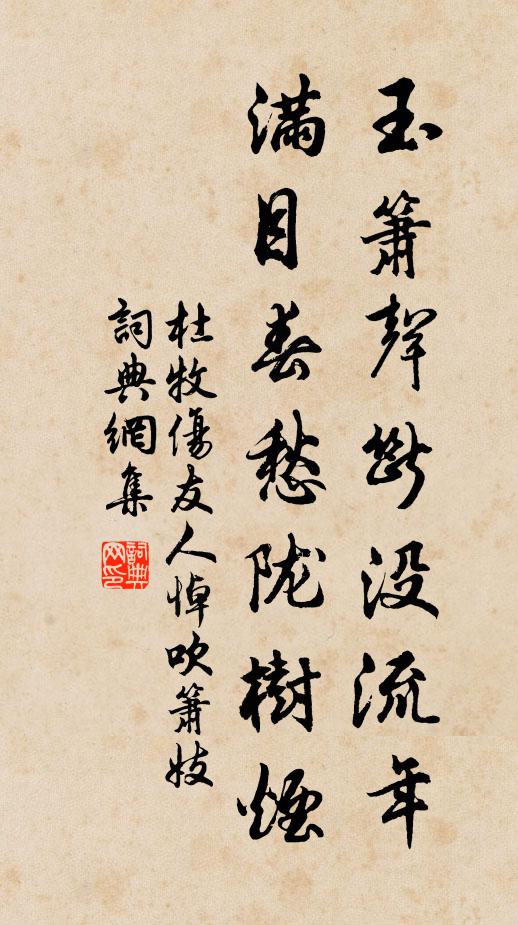 玉簫聲斷没流年
滿目春愁陇樹煙
杜牧傷友人悼吹簫妓
詞典網集
詞典网印